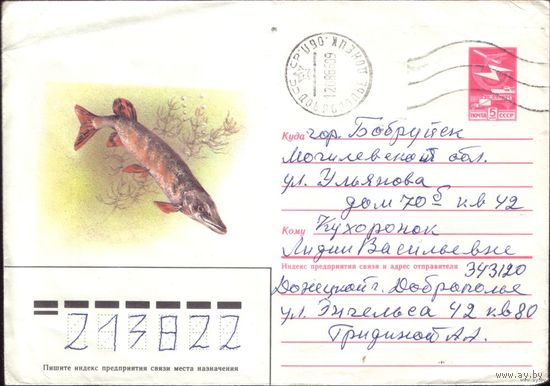 ПОЧТА 5 СССР
Куда гор. Бобруйск
Могилевской обл.
ул. Ульянова
дом 70 б кв 42
Кому Кухоронок
Лидии Васильевне
Индекс предприятия связи и адрес отправителя 343120
Донецкой г. Доброполье
ул. Энгельса 42 кв 80
Гридиной А.А.
213822
Пишите индекс предприятия связи места назначения
www.ay.by